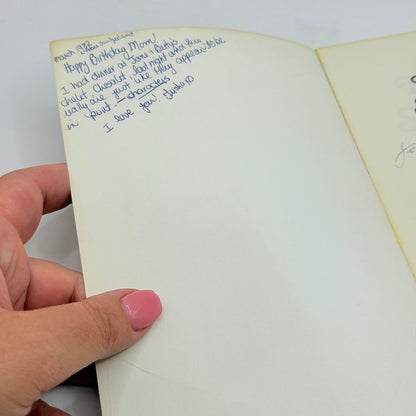 march 1982
Happy Birthday Mom!
I had dinner at Toni & Ruth's
chalet Chesalet last night and they
really are just like they appear to be
in print. — characters
I love you.